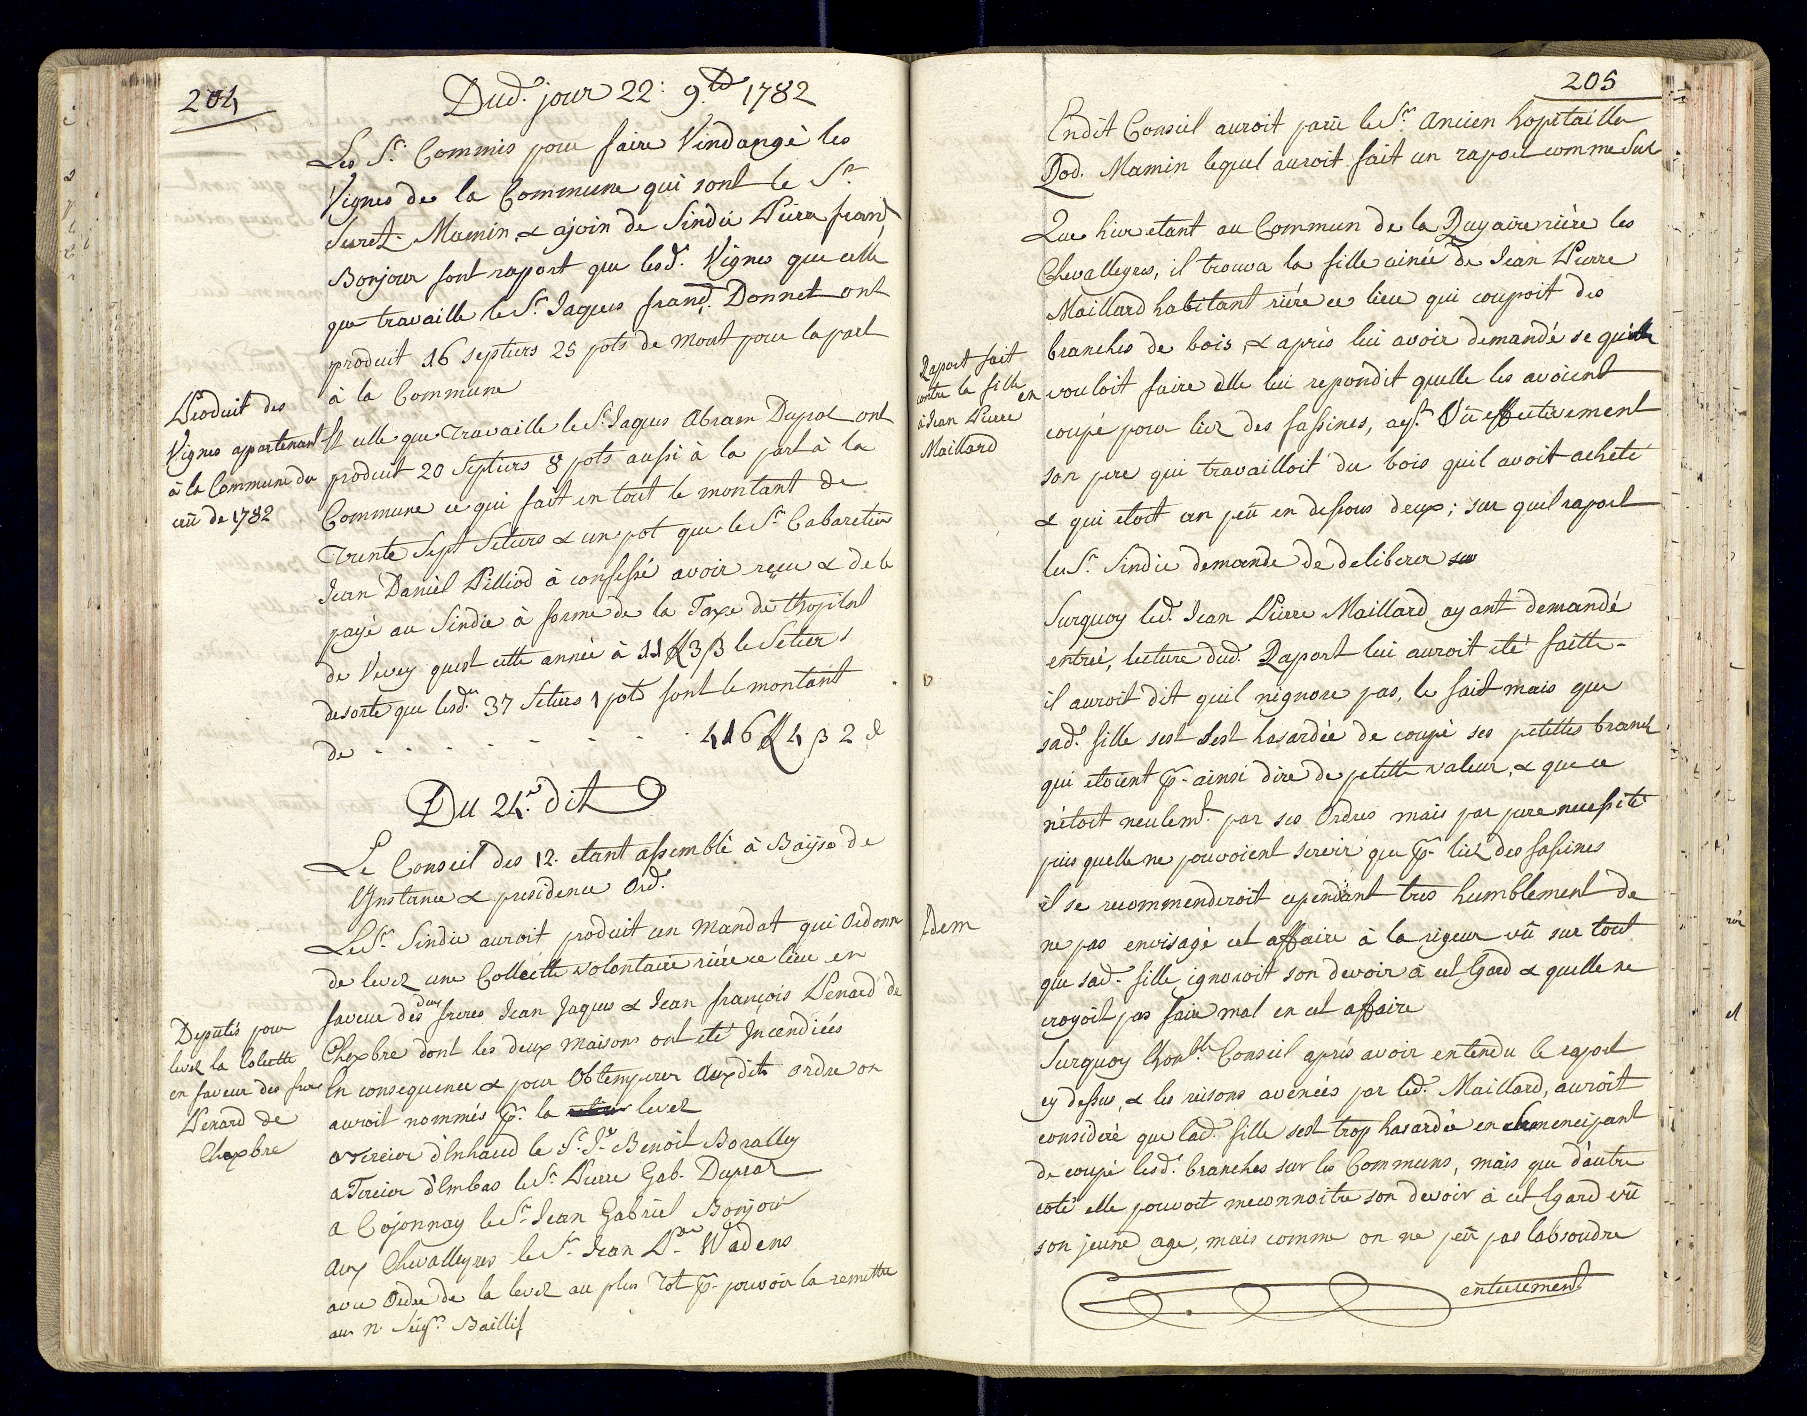 204
Dud. jour 22: 9.bre 1782
Les Srs. Commis pour faire Vindangé les
Vignes de la Commune qui sont le Sr.
Secret. Mamin, & ajoin de Sindic Pierre frand
Bonjour font rapport que lesd. Vignes que celle
que travaille le Sr. Jaques frand. Donnet ont
produit 16 septiers 25 pots de mout pour la part
à la Commune
Produit des
Vignes appartenant
à la Commune du
crû de 1782
Et celle que Travaille le Sr. Jaques Abram Dupraz ont
produit 20 Septiers 8 pots aussi à la part à la
Commune ce qui fait en tout le montant de
Trente Sept Setiers & un pot que le Sr. Cabaretier
Jean Daniel Pilliod à confessé avoir reçu &
payé au Sindic à forme de la Taxe de l'hopital
de Vevey quest cette année à 11 3 ß le Setier
desorte que lesd. 37 Setiers 1 pots font le montant
de - - - - - - - - 416 4 ß 2 d
Du 24.e dit
Le Conseil des 12. etant assemblé à Baÿse de
Ynstance & presidence Ord.
Le Sr. Sindic auroit produit un mandat qui Ordonne
de levez une Collecte volontaire riére ce lieu en
faveur des deux freres Jean Jaques & Jean françois Penard de
Chexbre dont les deux maisons ont eté Incendiées
Deputés pour
levez la Colecte
en faveur des freres
Penard de
Chexbre
En consequence & pour Obtemperer Auxdits ordre on
auroit nommés p. la levez
a Tercier d'Enhaud le Sr. Je. Benoit Boralley
a Tercier d'Embas le Sr. Pierre Gab. Dupraz
a Cojonnay le Sr. Jean Gabriel Bonjour
aux Chevalleyres le Sr. Jean Wadens
avec Ordre de la levez au plus Tot p. pouvoir la remettre
au n. Seigr. Baillif
205
Endit Conseil auroit parû le Sr. Ancien hopitaille
Rod. Mamin lequel auroit fait un raport comme Suit
Que hier etant au Commun de la Duyaire riére les
Chevalleyres, il trouva la fille ainée de Jean Pierre
Maillard habitant riére ce lieu qui coupoit des
Raport fait
contre la fille
à Jean Pierre
Maillard
branches de bois, & aprés lui avoir demandé se quelle
en vouloit faire elle lui repondit quelle les avoient
coupé pour liez des fassines, ayt. Vû effectivement
son pere qui travailloit du bois quil avoit acheté
& qui etoit un peû en dessous deux; sur quel raport
le Sr. Sindic demande de deliberer
Surquoy led. Jean Pierre Maillard ayant demandé
entrée, lecture dud. Raport lui auroit eté faitte -
il auroit dit quil nignore pas, le fait mais que
sad. fille sest sest hasardée de coupé ses petittes branch
qui etoient p. ainsi dire de petitte valeur, & que ce
n'étoit neulemt. par ses Ordres mais par pure necessité
puis quelle ne pouvoient servir que p. liez des fassines
Idem
il se recommenderoit ependant tres humblement de
ne pas envisagé cet affaire à la rigeur vû sur tout
que sad. fille ignoroit son devoir à cet Egard & quelle ne
croyoit pas faire mal en cet affaire
Surquoy l'honble. Conseil aprés avoir entendu le raport
cy dessus, & les raisons avencées par led. Maillard, auroit
consideré que lad. fille sest trop hasardée en
de coupé lesd. branches sur les Communs, mais que d'autre
coté elle pouvoit meconnoitre son devoir à cet Egard vû
son jeune age, mais comme on ne peû pas labsoudre
entierement